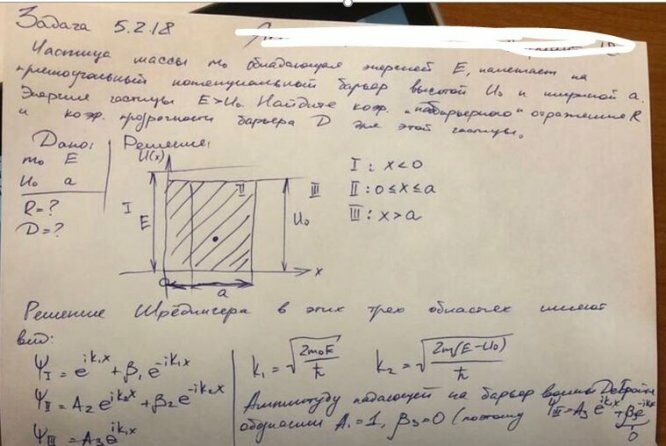 Задача 5.2.18
Частица массы m₀ обладающая энергией E, налетает на
прямоугольный потенциальный барьер высотой U₀ и шириной a.
Энергия частицы E>U₀. Найдите коэф. „надбарьерного" отражения R
и коэф. прозрачности барьера D для этой частицы.
Дано: Решение:
m₀ E
U₀ a
R=?
D=?
U(x)
I E II III U₀
0 a x
I: x<0
II: 0≤x≤a
III: x>a
Решение Шрёдингера в этих трех областях имеют
вид:
Ψ_I = e^{ik₁x} + β₁e^{-ik₁x}
Ψ_II = A₂e^{ik₂x} + β₂e^{-ik₂x}
Ψ_III = A₃e^{ik₁x}
k₁ = √(2m₀E)/ħ k₂ = √(2m(E-U₀))/ħ
Амплитуду падающей на барьер волны ДеБройля
обозначим A₁=1, β₃=0 (поэтому Ψ_III = A₃e^{ik₁x} + β₃e^{-ik₁x}
0